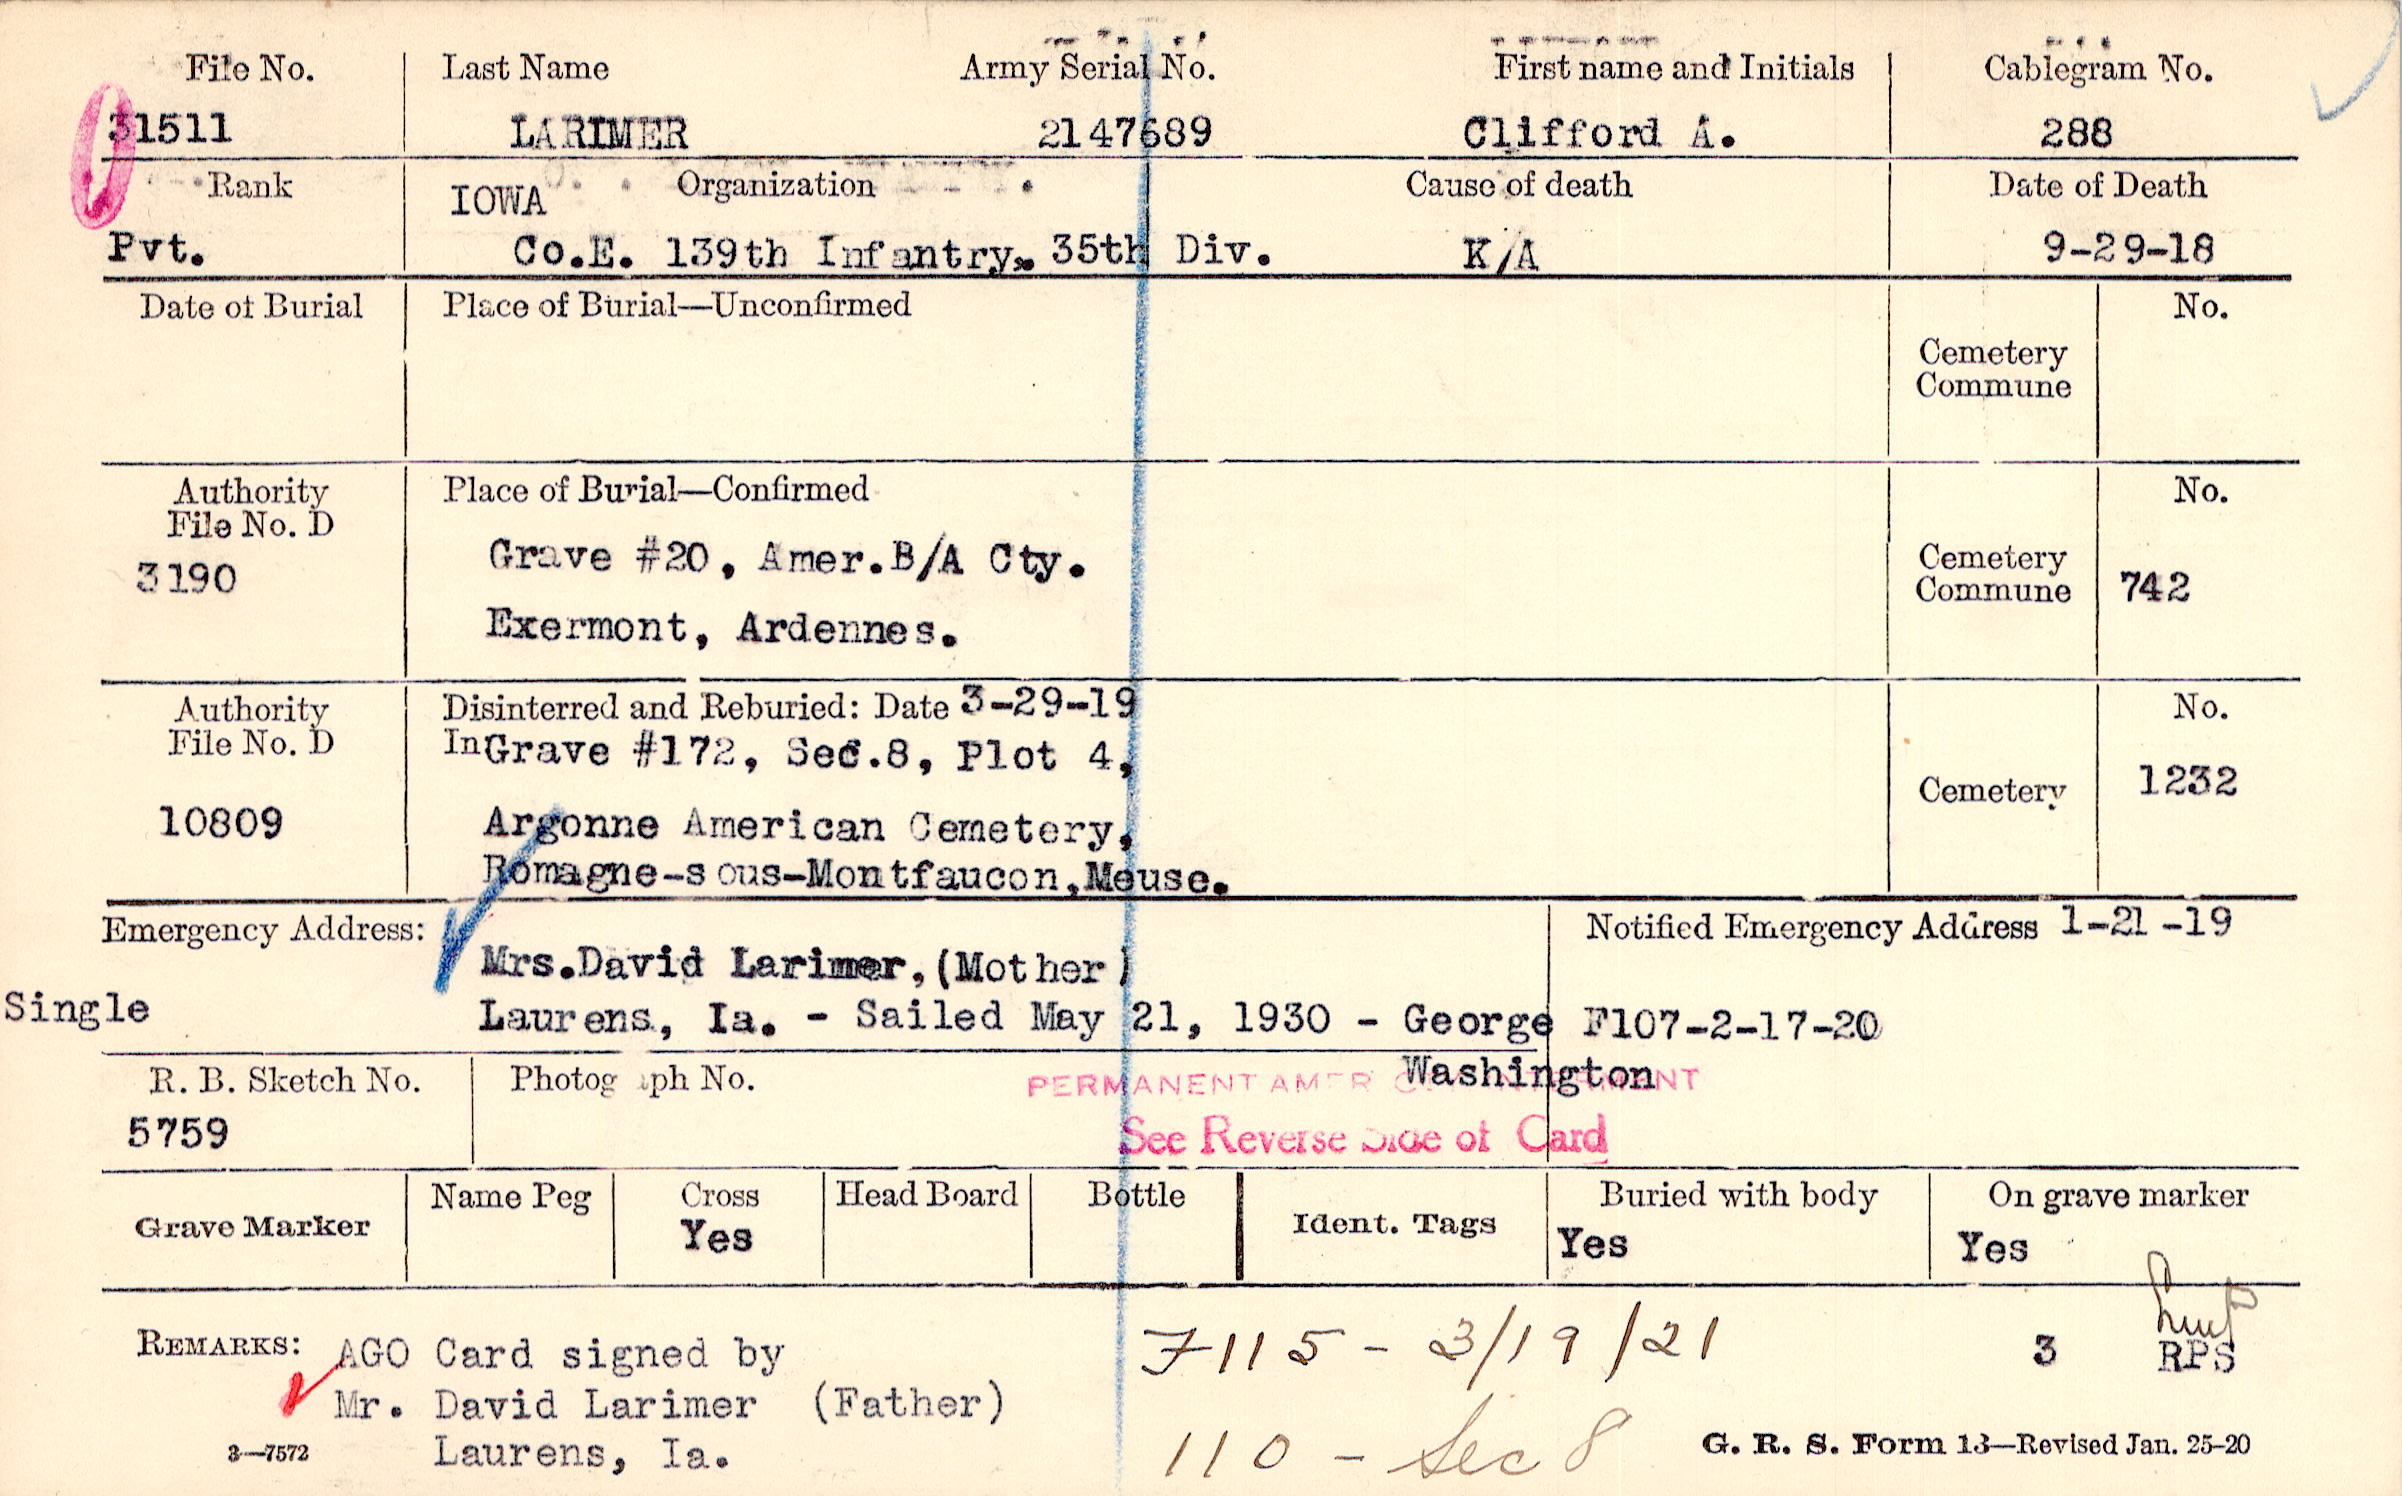 File No. Last Name Army Serial No. First name and Initials Cablegram No.
31511 LARIMER 2147689 Clifford A. 288
Rank IOWA Organization Cause of death Date of Death
Pvt. Co.E. 139th Infantry. 35th Div. K/A 9-29-18
Date of Burial Place of Burial—Unconfirmed No.
Cemetery
Commune
Authority Place of Burial—Confirmed No.
File No. D
3190 Grave #20, Amer.B/A Cty. Cemetery
Commune 742
Exermont, Ardennes.
Authority Disinterred and Reburied: Date 3-29-19 No.
File No. D In Grave #172, Sec.8, Plot 4,
Cemetery 1232
10809 Argonne American Cemetery,
Romagne-sous-Montfaucon,Meuse.
Emergency Address: Notified Emergency Address 1-21-19
Mrs.David Larimer,(Mother)
Single Laurens, Ia. - Sailed May 21, 1930 - George F107-2-17-20
Washington
R. B. Sketch No. Photograph No. PERMANENT AMERICAN INTERMENT
5759 See Reverse Side of Card
Grave Marker Name Peg Cross Head Board Bottle Ident. Tags Buried with body On grave marker
Yes Yes Yes
REMARKS: AGO Card signed by F115 - 3/19/21 3 RPS
Mr. David Larimer (Father)
3—7572 Laurens, Ia. 110 - Sec 8 G. R. S. Form 13—Revised Jan. 25-20